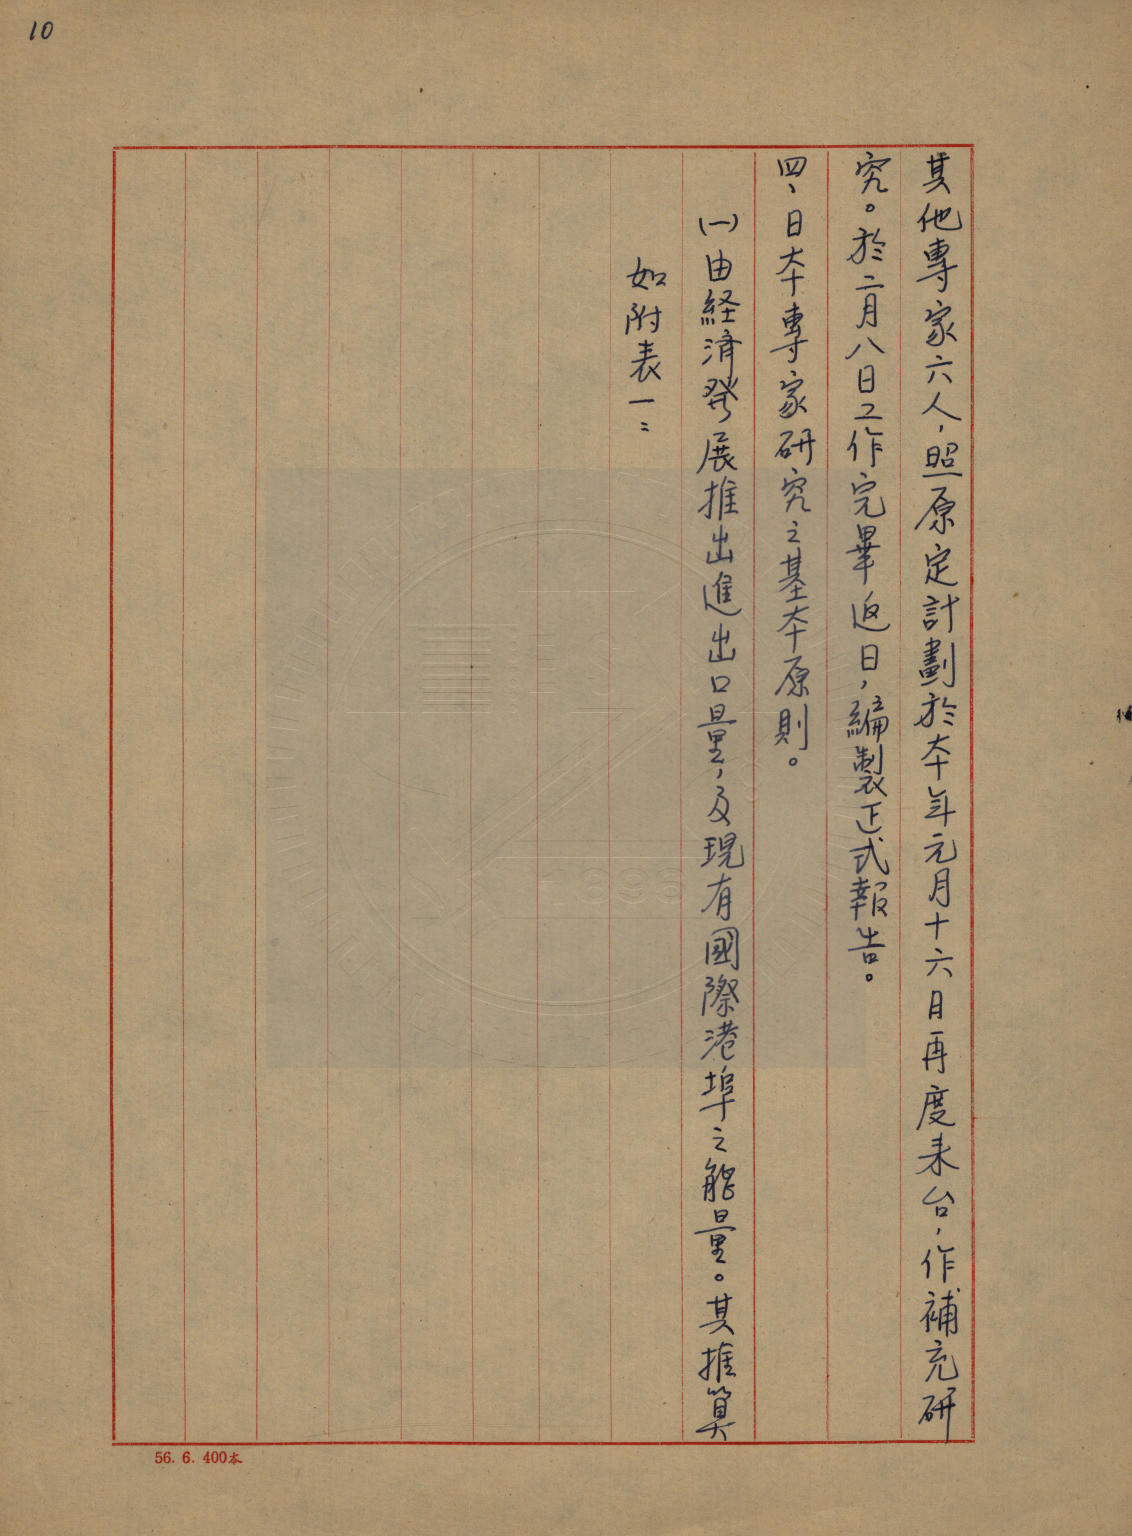 10
其他專家六人，照原定計劃於本年元月十六日再度来台，作補充研
究。於二月八日工作完畢返日，編製正式報告。
四、日本專家研究之基本原則。
㈠由経済發展推出進出口量，及現有國際港埠之能量。其推算
如附表一：
56. 6. 400本
1896